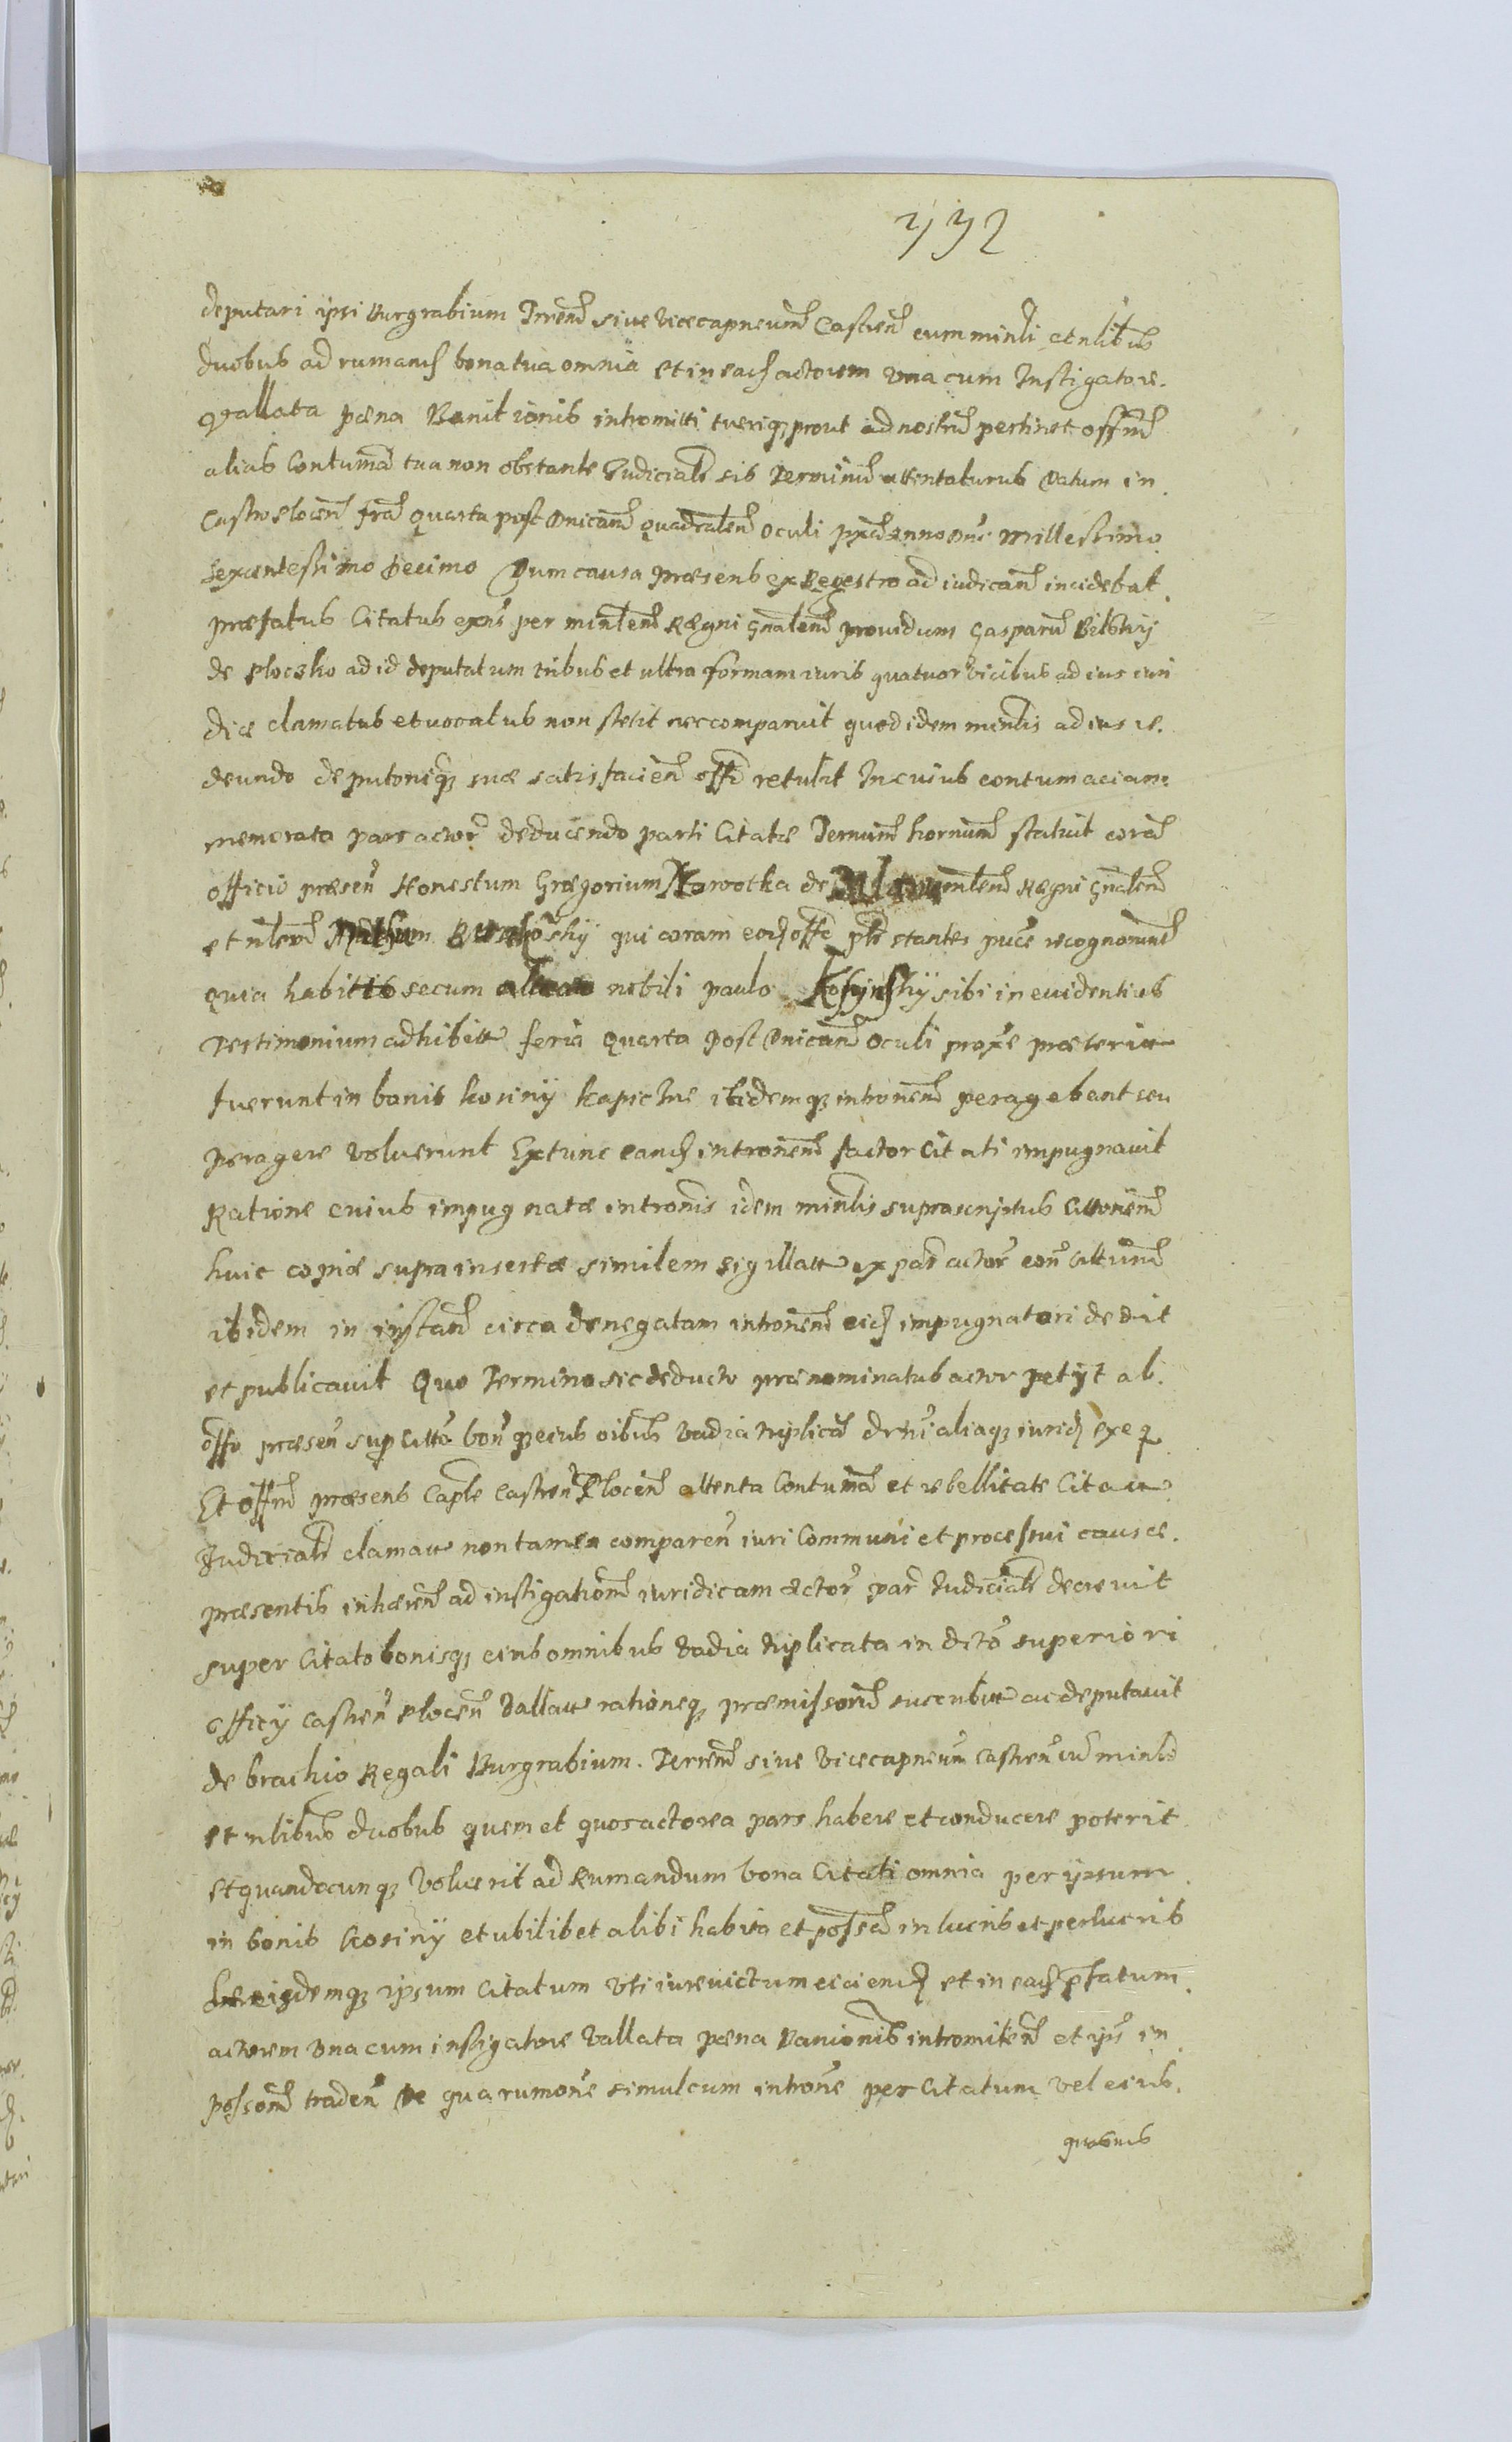 792
deputari ipsi Burgrabium Trrenem sive vicecapneum Castrens cum minli et nlibus
duobus ad rumand bona tua omnia et in ead actorem una cum Instigatore
vallata pæna Banitionis intromitti tueriq prout ad nostrum pertinet offm
alias Contuma tua non obstante Judicialr sis Terminum attentaturus Datum in
Castro Plocen fra Quarta post Dnicam Quadralem Oculi pxa Anno Dni Millesimo
Sexcentesimo Decimo Dum causa Præsens ex Regestro ad iudicand incidebat
præfatus Citatus exns per minlem Regni Gnalem providum Gasparum Bilskij
de Ploczko ad id deputatum tribus et ultra formam iuris quatuor vicibus ad ius iuri
dice clamatus et vocatus non stetit nec comparuit quod idem minlis ad ius re
deundo deputoniq suæ satisfaciens offo retulit In cuius contumaciam
memorata pars actor deducendo parti Citatæ Termium hornum statuit coram
officio præsen Honestum Gregorium Nowotka de minlem Regni Gnalem
et nlem qui coram eod offo pls stantes puce recognorunt
Quia habitto secum nobili paulo Kossinskij sibi in evidentius
Testimonium adhibitt feria Quarta post Dnicam Oculi proxe præteritt
fuerunt in bonis Kosiny Kapicine ibidemq intronem peragebant seu
peragere voluerunt Extunc eand intronem factor Citati impugnavit
Ratione cuius impugnatæ intronis idem minlis suprascriptus Cittonem
huic copiæ supra insertæ similem sigillatt ex par actor con Cittum
ibidem in instan circa denegatam intronem eid impugnatori dedit
et publicavit Quo Termino sic deducto prænominatus actor petijt ab
offo præsen sup Citto bonq eius oibus vadia triplica drni aliaq iurid exeq
Et offm præsens Caple Castren Plocen attenta Contuma et rebellitate Citatt
Judicialr clamatt non tamen comparen iuri Communi et processui causæ
præsentis inhæren ad instigationem iuridicam actor par Judicialr decrevit
super Citato bonisq eius omnibus vadia triplicata in dicto superiori
officij Castren Plocen vallatt rationeq præmissorum succubitt ac deputavit
de brachio Regali Burgrabium Terrem sive vicecapneum Castren cum minli
et nlibus duobus quem et quos actorea pars habere et conducere poterit
et quandocunq voluerit ad Rumandum bona Citati omnia per ipsum
in bonis Kosiny et ubilibet alibi habita et possa in lucris et perlucris
eisdemq ipsum Citatum uti iurevictum eiciend et in ead pfatum
actorem una cum instigatore vallata pæna Banionis intromiten et ijs in
possonem traden De qua rumone simulcum introne per Citatum vel eius
quovis